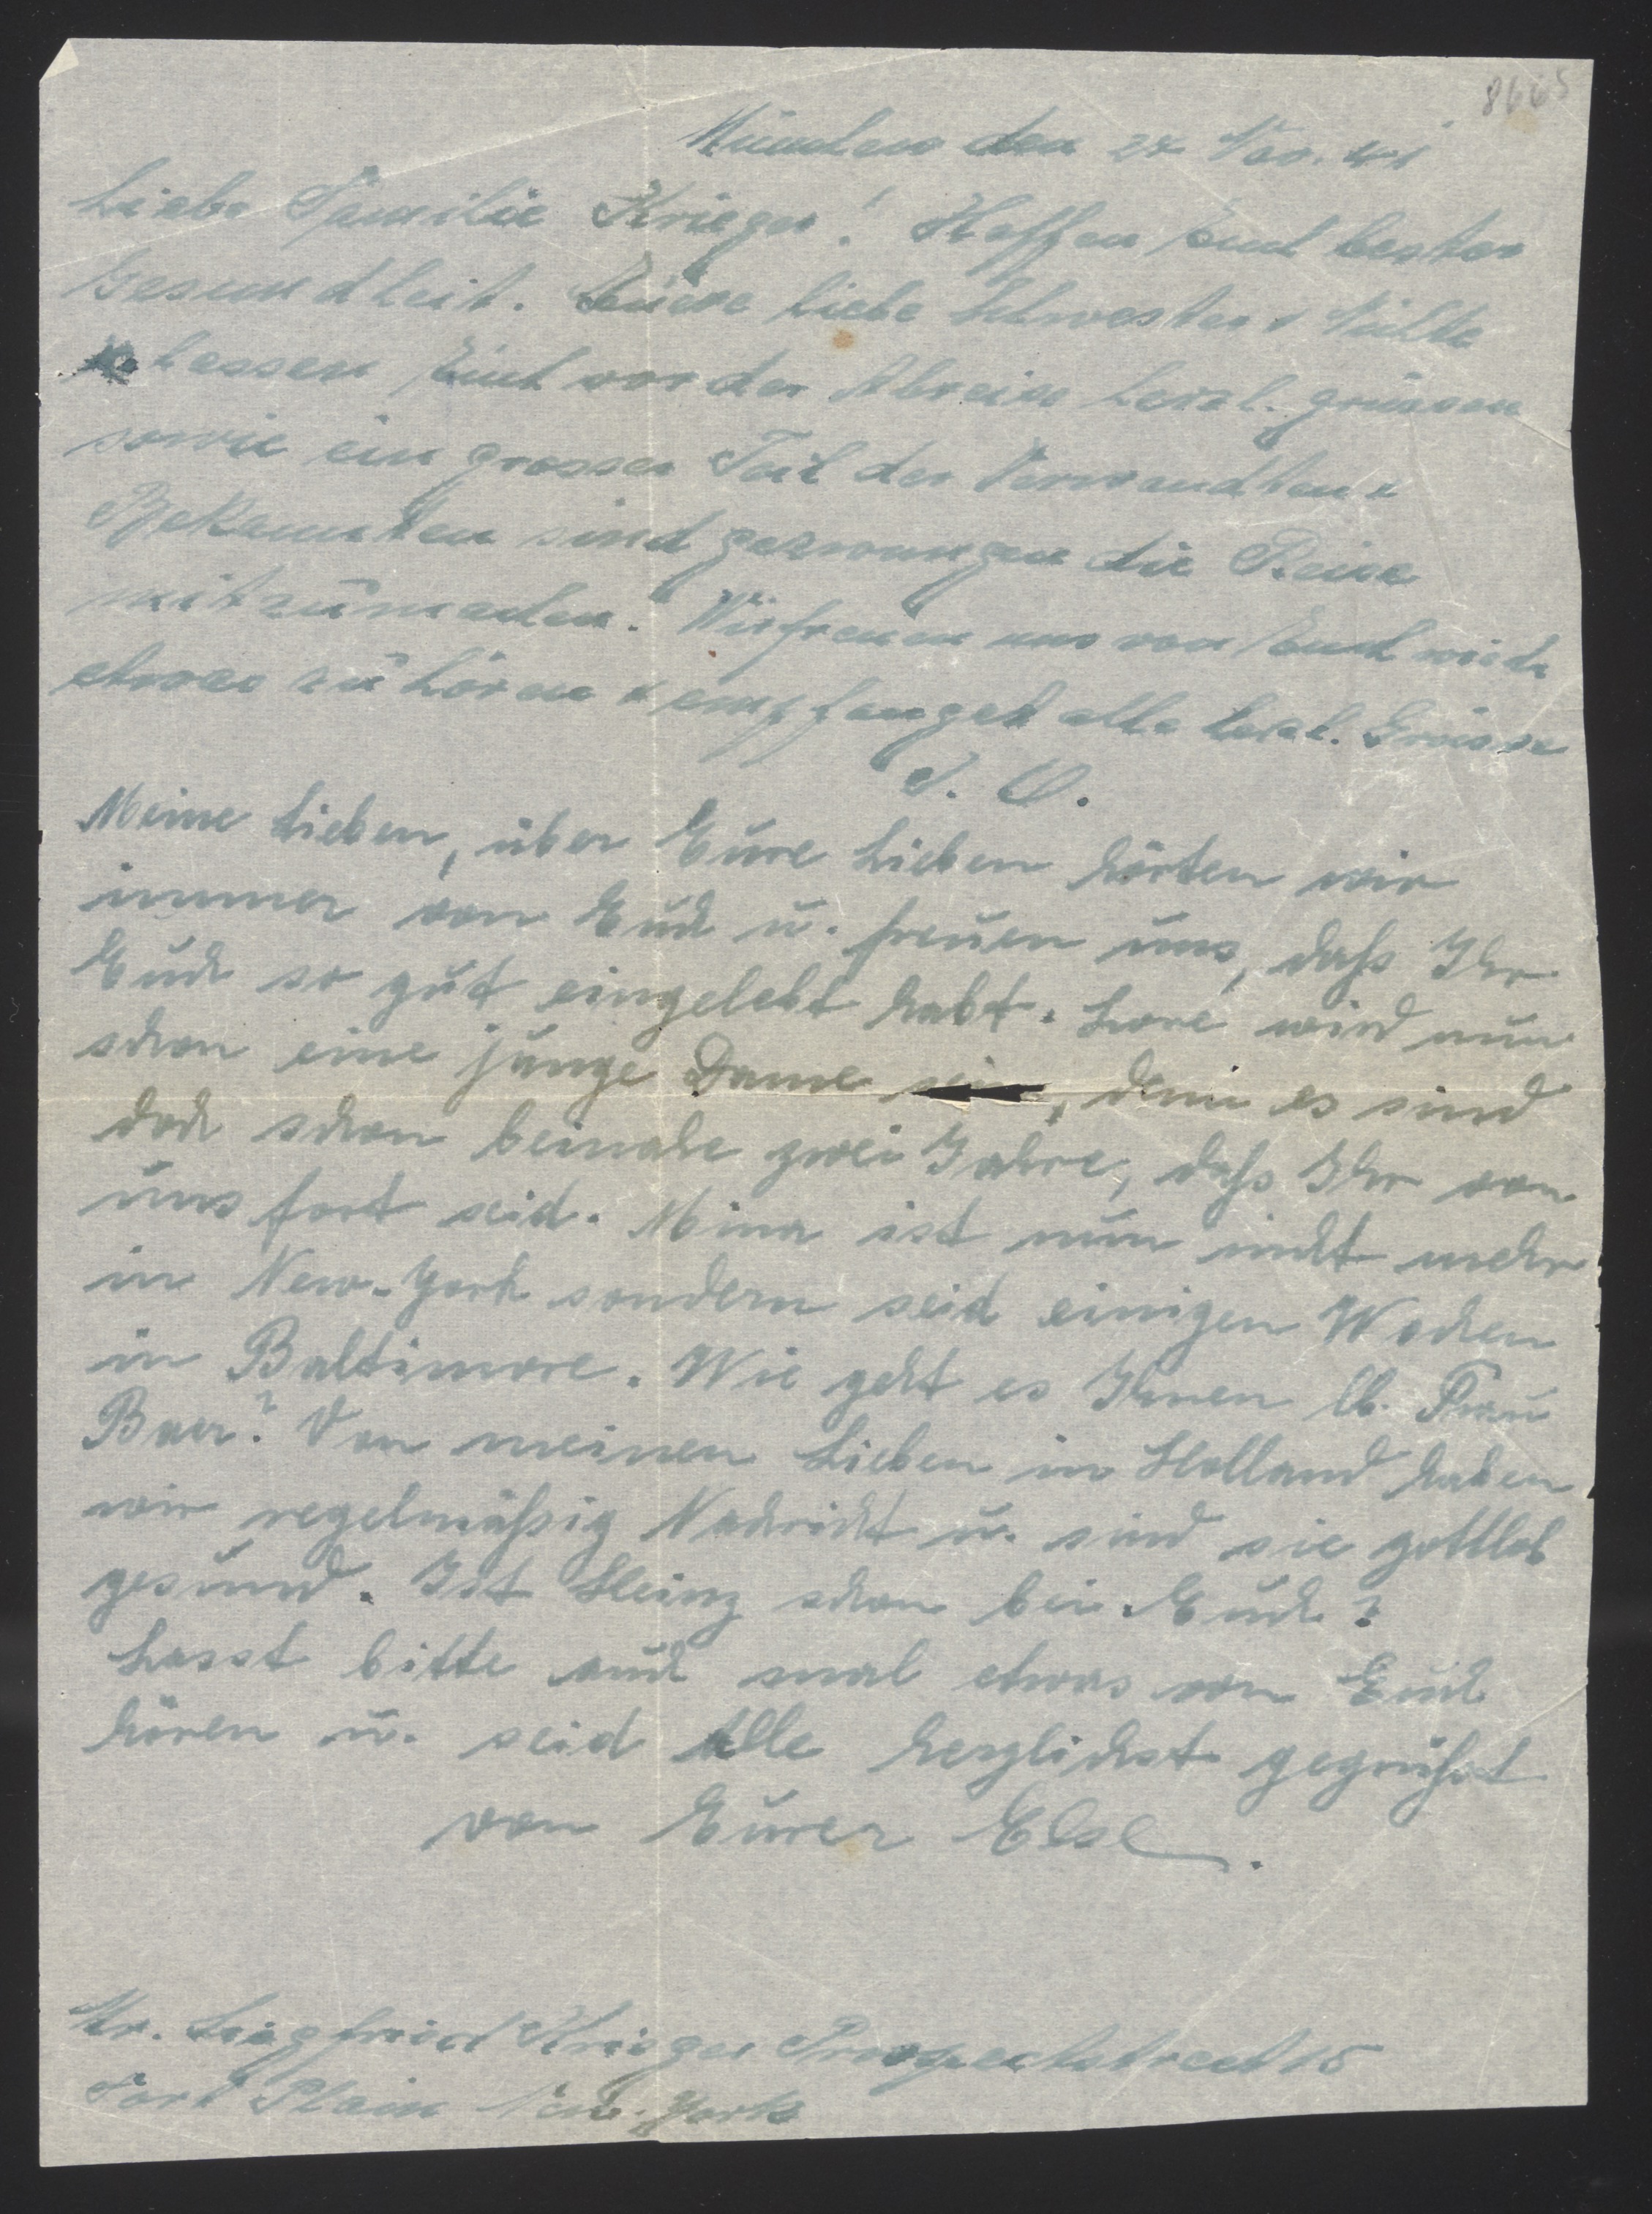 8665
München den 24 Nov. 41
Liebe Familie Krieger! Hoffen Euch bester
Gesundheit. Euere liebe Schwester u Nichte
lassen Euch vor der Abreise herzl. grüssen
sowie ein grosser Teil der Verwandten u
Bekannten sind gezwungen die Reise
mitzumachen. Wir freuen uns von Euch wieder
etwas zu hören u empfanget alle herzl. Grüsse
Meine Lieben, über Eure Lieben hörten wir
immer von Euch u. freuen uns, dass Ihr
Euch so gut eingelebt habt. Lore wird nun
schon eine junge Dame sein, denn es sind
doch schon beinahe zwei Jahre, dass Ihr von
uns fort seid. Mina ist nun nicht mehr
in New-York sondern seid einigen Wochen
in Baltimore. Wie geht es Ihnen lb. Frau
Baer? Von meinen Lieben in Holland haben
wir regelmässig Nachricht u. sind sie gottlob
gesund. Ist Heinz schon bei Euch?
Lasst bitte auch mal etwas von Euch
hören u. seid Alle herzlichst gegrüsst
von Eurer Else.
Mr. Siegfried Krieger Prospectstreet 15
Fort Plain New-York